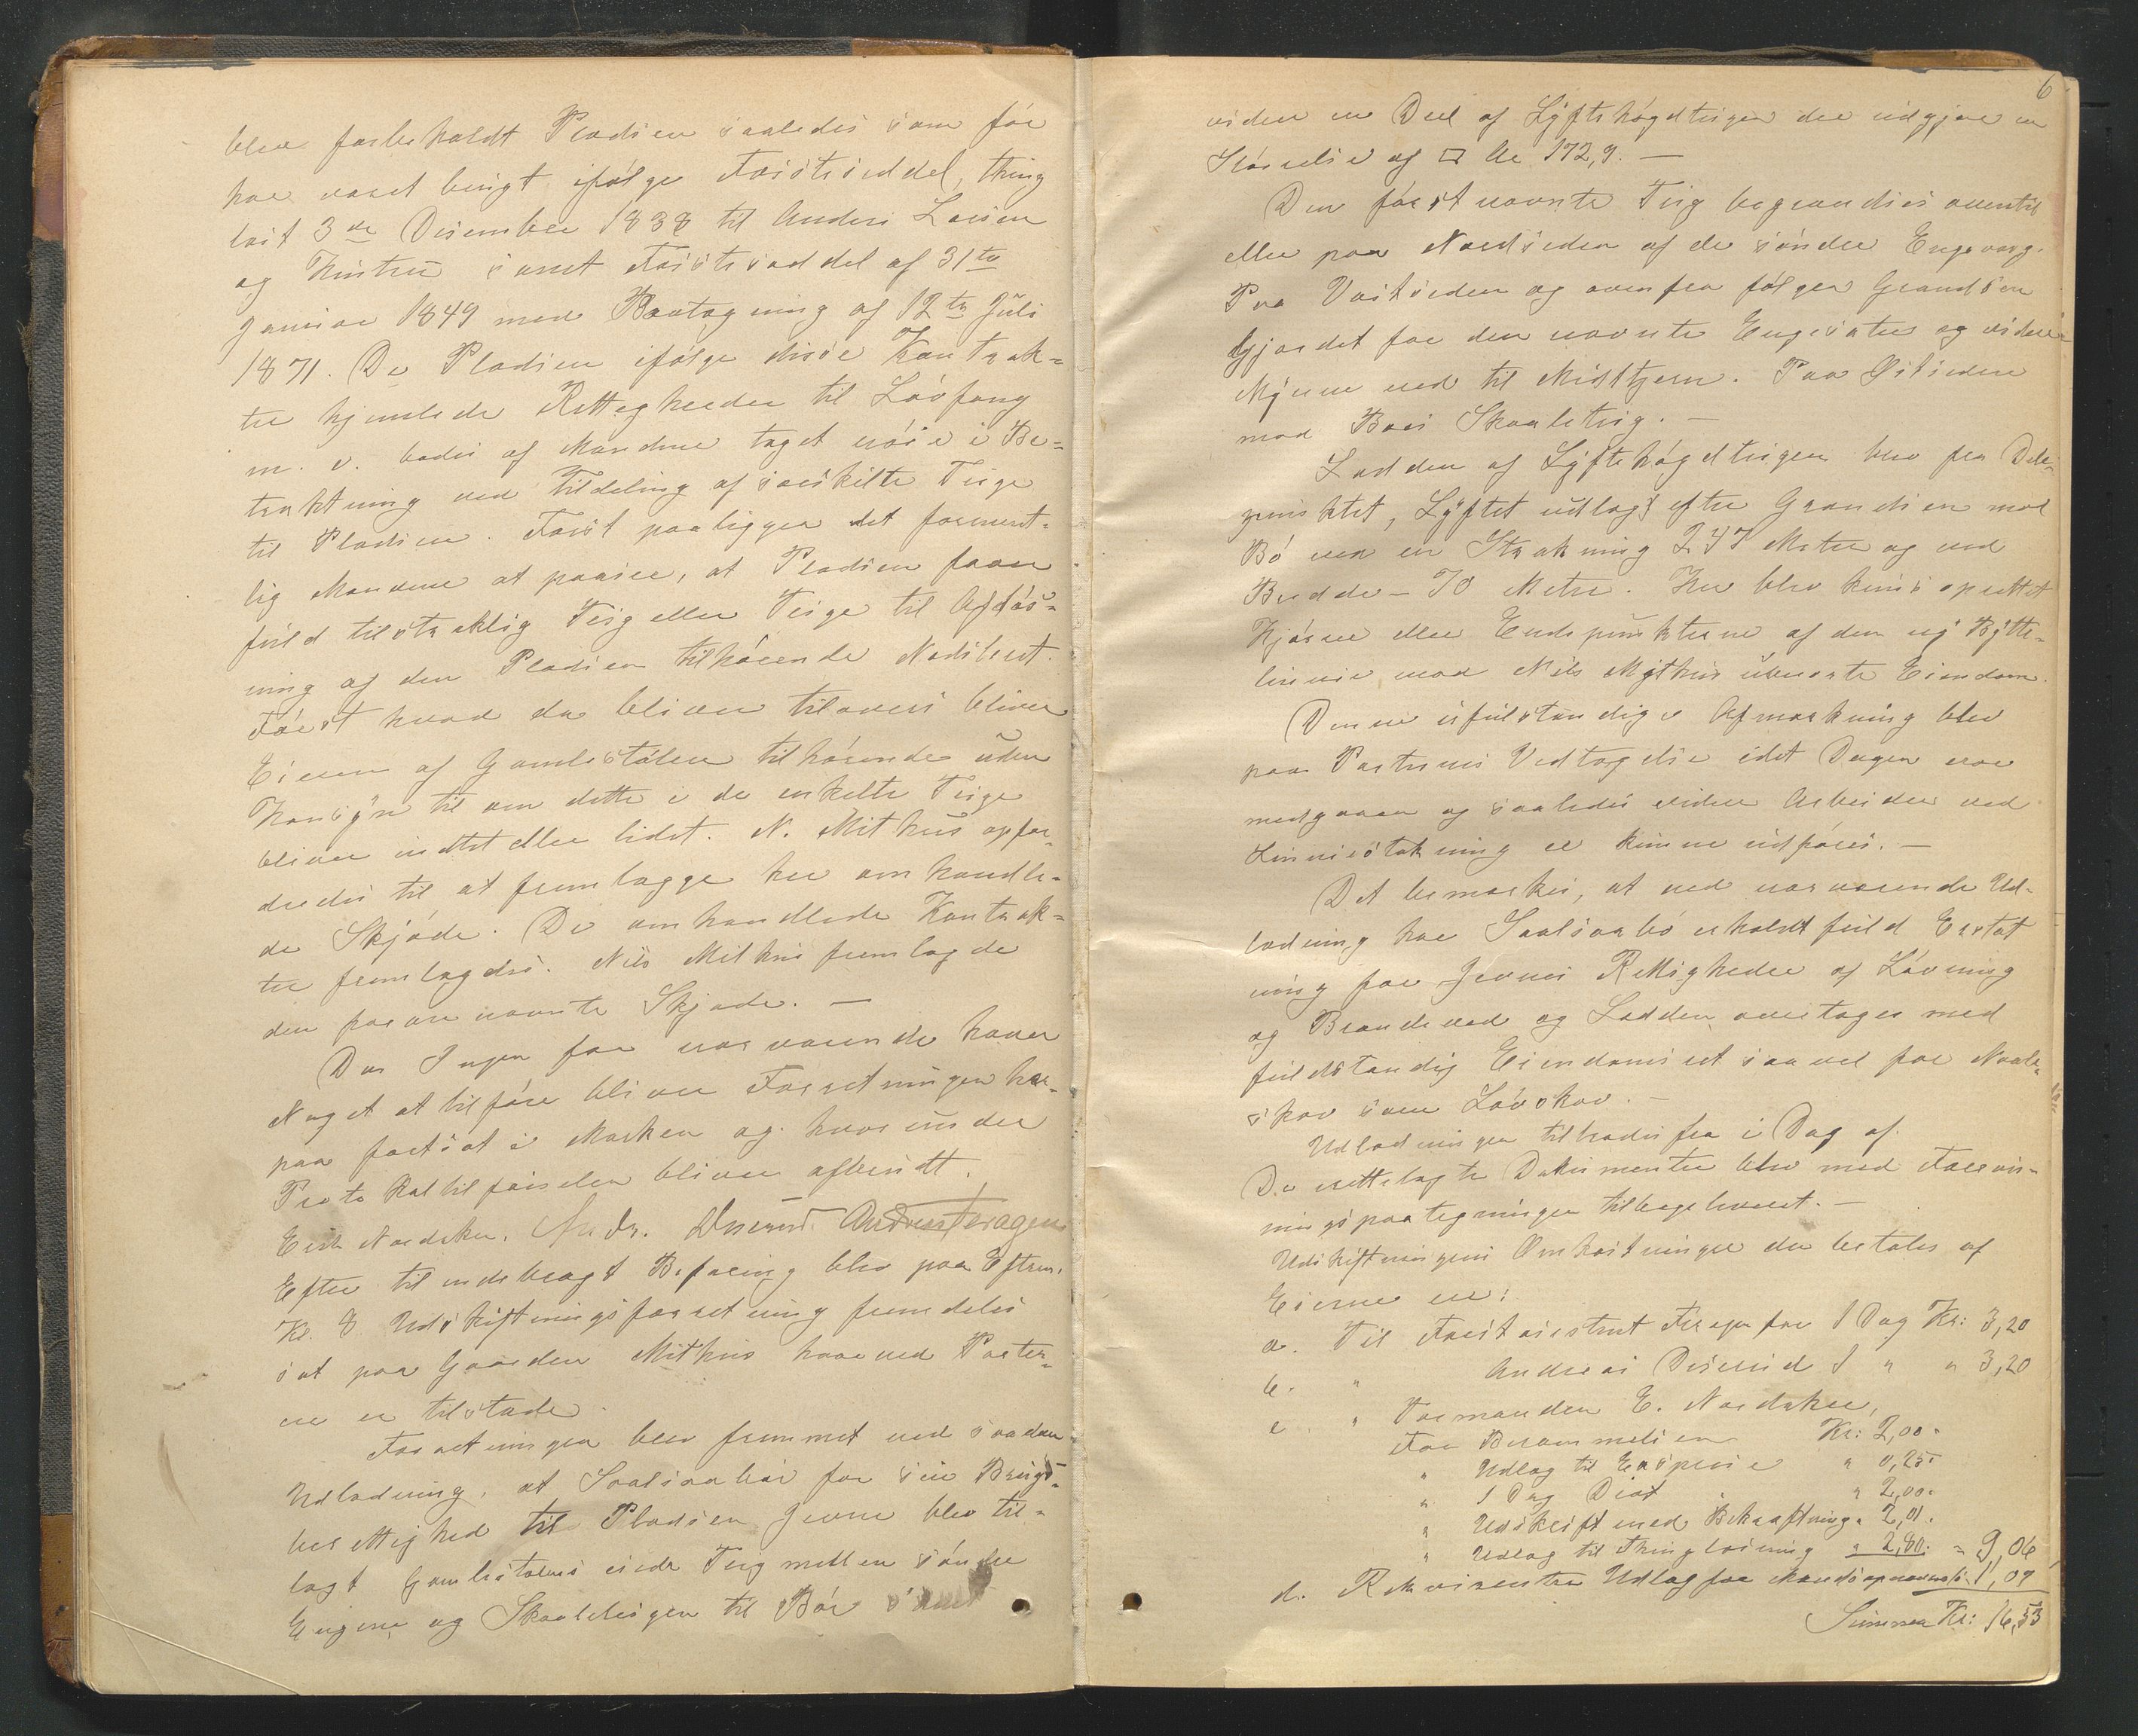 blev forbeholdt Pladsen saaledes som før
har været brugt ifølge Fæsteseddel, thing
læst 3de Desember 1838 til Anders Larsen
og Hustru samt Fæstesæddel af 31te
Januar 1849 med Paategning af 12te Juli
1871. De Pladsen ifølge disse Kontrak-
ter hjemlede Rettigheder til Løvfang
m. v. bades af Mændene taget nøie i Be-
tragtning ved Tildeling af særskilte Teige
til Pladsen. Først paaligger det forment-
lig Mændene at paasee, at Pladsen faaer
fuld tilstrækkelig Teig eller Teige til Afløs-
ning af den Pladsen tilhørende Nødsbeet.
Først hvad der bliver tilovers bliver
Eieren af Gamlestølen tilhørende uden
Hensyn til om dette i de enkelte Teige
bliver indtet eller lidet. N. Mithus opfor-
dredes til at fremlægge her omhandle-
de Skjøde. De omhandlede Kontrak-
ter fremlagdes. Nils Mithus fremlagde
den foran nævnte Skjøde. —
Da Ingen for nærværende haver
Noget at tilføre bliver Forretningen her-
paa fortsat i Marken og hvorunder
Protokoltilførselen bliver afbrudt.
Erik Nordaker. Andr. Diserud. Andreas Feragen
Efter tilendebragt Befaring blev paa Efterm.
Kl. 8 Udskiftningsforretning fremdeles
sat paa Gaarden Mithus hvorved Parter-
ne er tilstæde.
Forretningen blev fremmet ved saadan
Udlodning, at Saalsaabøs for sin Brugs-
berettighed til Pladsen Jevne blev til-
lagt Gamlestølens eiede Teig mellem søndre
Engene og Skaalteigen til Bøe samt
6
viden en Deel af Lyftehøgdteigen der udgjør en
Størrelse af □ Ar 172,9. —
Den først nævnte Teig begrændses oventil
eller paa Nordsiden af de søndre Engevæg.
Paa Vestsiden og ovenfra følger Grændsen
Gjærdet for den nævnte Engesæter og videre
Myrene ned til Midttjern. Paa Østsiden
mod Bøes Skaalteig. —
Lodden af Lyftehøgdteigen blev fra Dele-
punktet, Lyftet udlagt efter Grændsen mod
Bø ved en Strækning 247 Meter og ved
Bredde — 70 Meter. Her blev kuns oprettet
Hjørne eller Endepunkterne af den ny Bytte-
linie mod Nils Mythus ubenævnte Eiendom.
Denne ufulstændige Afmærkning blev
paa Parternes Vedtagelse idet Dagen var
medgaaen og saaledes videre Arbeider ved
Liniestikning ei kunne udføres. —
Det bemærkes, at ved nærværende Ud-
lodning har Saalsaabø erholdt fuld Erstat
ning for Jevnes Rettigheder af Løvning
og Brændeved og Lodden overtages med
fuldstændig Eiendomsret saavel for Naale-
skov som Løvskov. —
Udlodningen tiltrædes fra i Dag af.
De rettelagte Dokumenter blev med Forevis-
ningspaategninger tilbageleveret. —
Udskiftningens Omkostninger der betales af
Eierne er:
a. Til Forstassistent Feragen for 1 Dag Kr: 3,20
b. " Andreas Diserud 1 " " 3,20
c. " Formanden E. Nordaker,
For Berammelsen Kr: 2,00.
" Udlæg til Expresse " 0,25
" 1 Dag Diæt " 2,00.
" Udskrift med Bekræftning " 2,01.
" Udlæg til Thinglæsning " 2,80. = 9,06
d. Rekvirenten Udlæg for Mændsopnævnelse 1,07
Summa Kr: 16,53